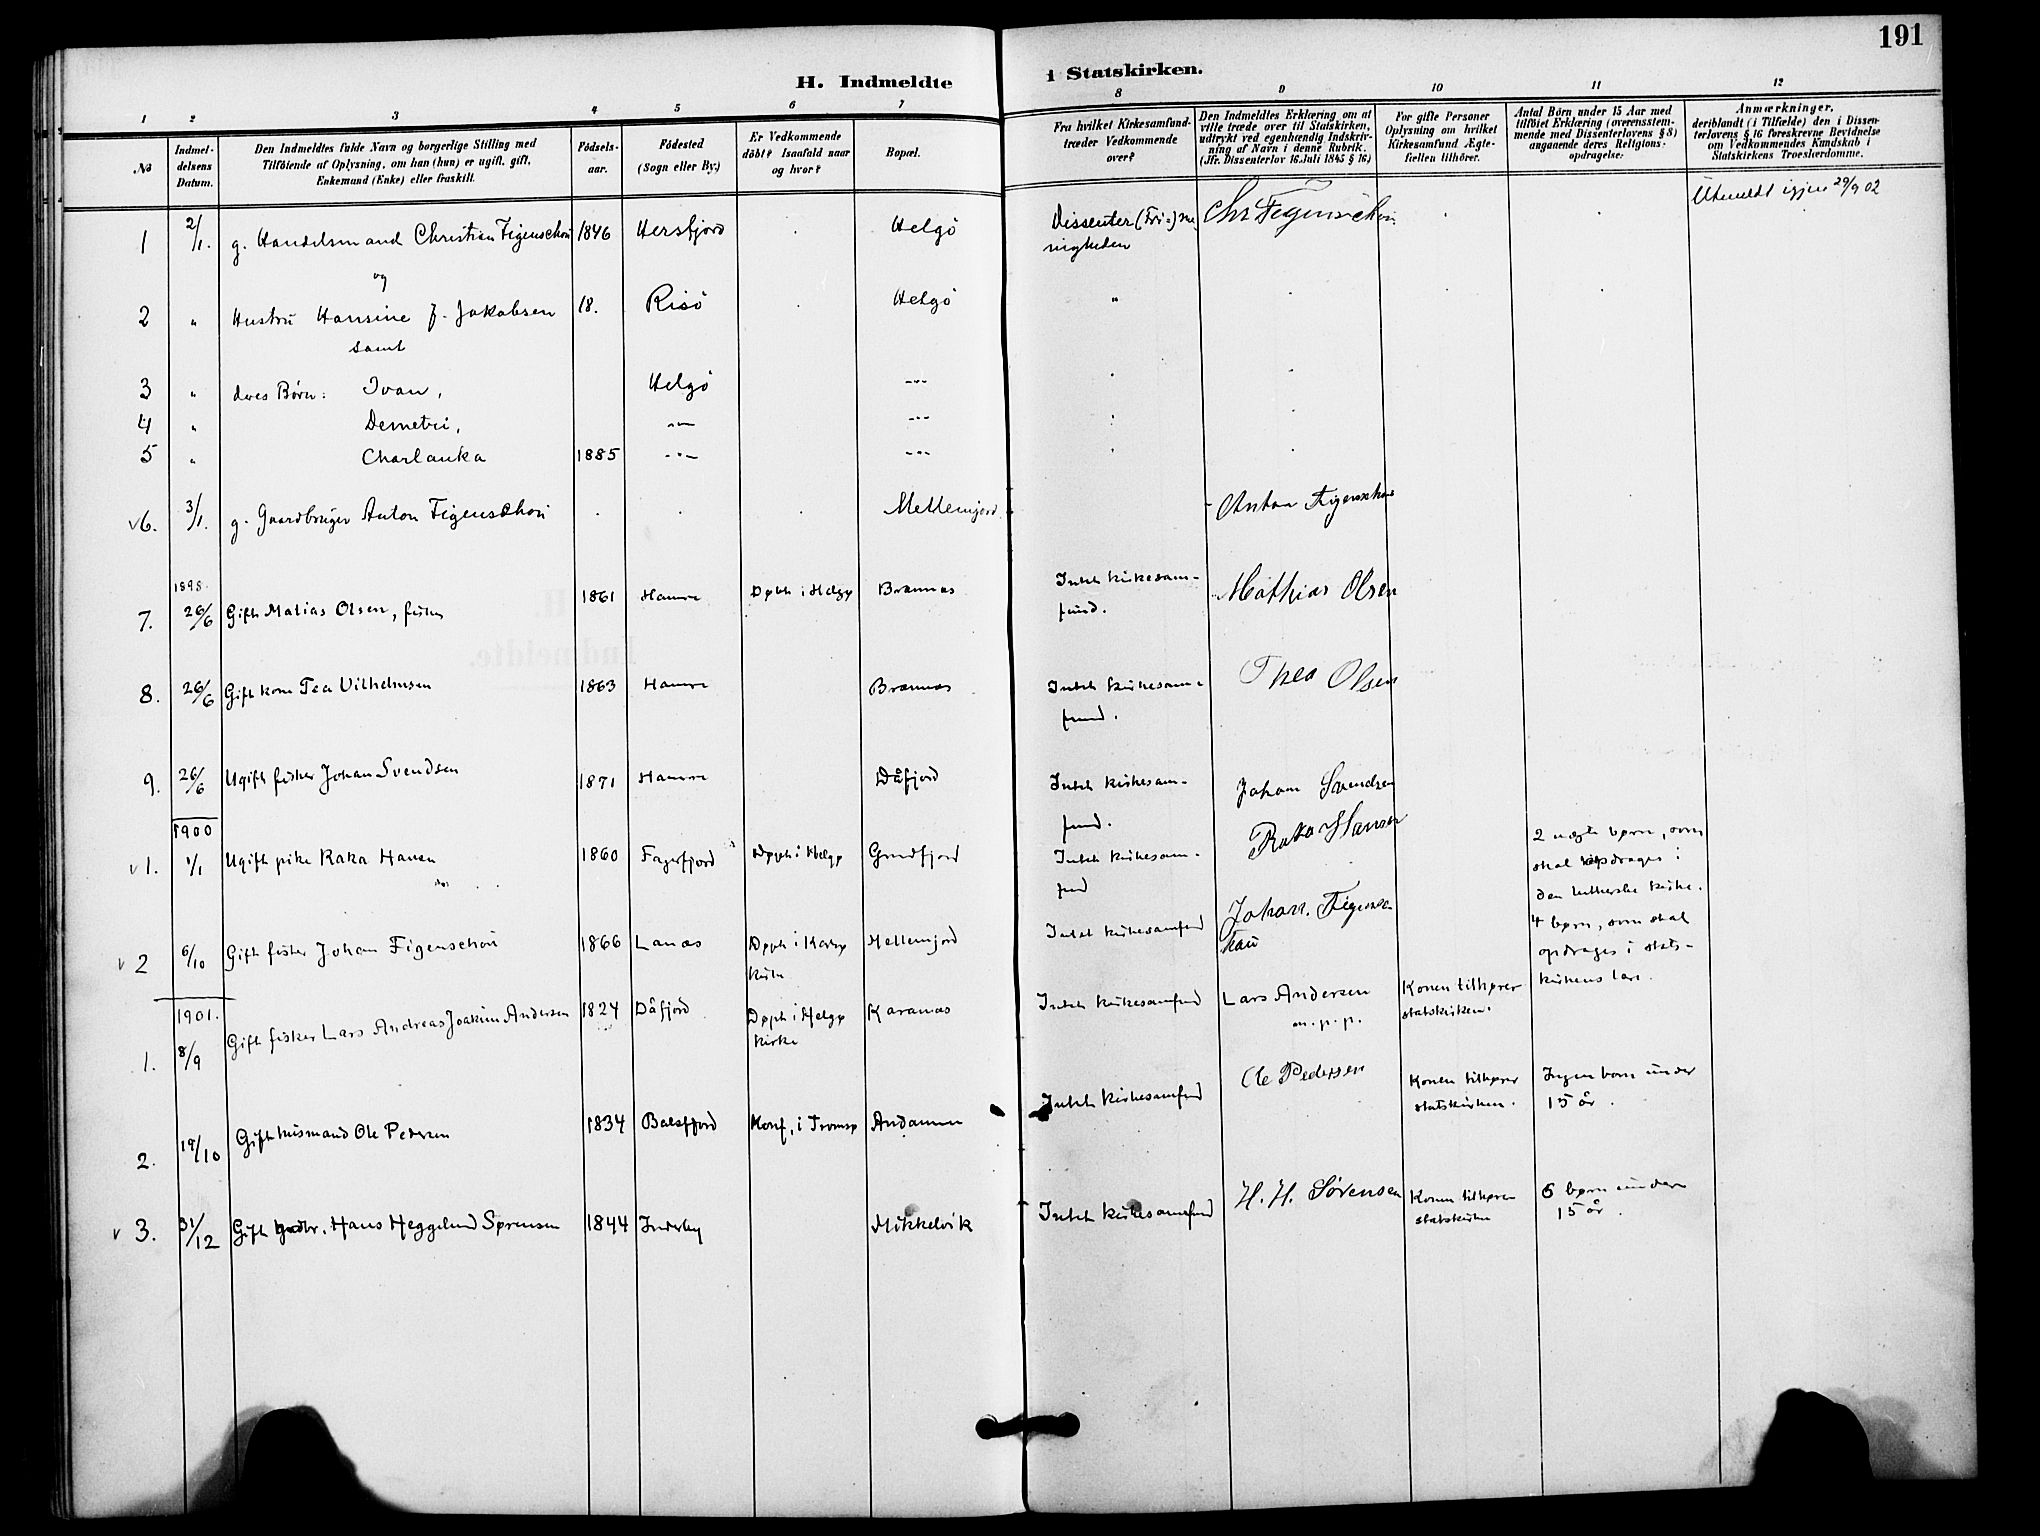 191
H. Indmeldte i Statskirken.
1 2 3 4 5 6 7 8 9 10 11 12
No
Indmel-
delsens
Datum.
Den Indmeldtes fulde Navn og borgerlige Stilling med
Tilföiende af Oplysning, om han (hun) er ugift, gift,
Enkemand (Enke) eller fraskilt.
Födsels-
aar.
Födested
(Sogn eller By.)
Er Vedkommende
döbt? Isaafald naar
og hvor?
Bopæl.
Fra hvilket Kirkesamfund
træder Vedkommende
over?
Den Indmeldtes Erklæring om at
ville træde over til Statskirken,
udtrykt ved egenhændig Indskriv-
ning af Navn i denne Rubrik.
(Jfr. Dissenterlov 16 Juli 1845 § 16)
For gifte Personer
Oplysning om hvilket
Kirkesamfund Ægte-
fællen tilhörer.
Antal Börn under 15 Aar med
tilföiet Erklæring (overensstem-
mende med Dissenterlovens § 8)
angaaende deres Religions-
opdragelse.
Anmærkninger,
deriblandt (i Tilfælde) den i Dissen-
terlovens § 16 foreskrevne Bevidnelse
om Vedkommendes Kundskab i
Statskirkens Troeslærdomme.
1 2/1. g. Handelsmand Christian Figenschou 1846 Hersfjord Helgö Dissenter (Fri-) me- Chr Figenschou Utmeldt igjen 29/9 02
nigheden
og
2 " Hustru Hansine f. Jakobsen 18. Risö Helgö "
samt
3 " deres Børn: Ivan, Helgö -"-
4 " Demetri, -"- -"-
5 " Charlanka 1885 -"- -"-
v6. 3/1. g. Gaardbruger Anton Figenschou Mellemjord Anton Figenschou
1898.
7. 26/6 Gift Matias Olsen, fisker 1861 Hamre Døbt i Helgø Brænnes Intet kirkesam- Mathias Olsen
fund.
8. 26/6 Gift kone Tea Vilhelmsen 1863 Hamre Brænnes Intet kirkesam- Thea Olsen
fund.
9. 26/6 Ugift fisker Johan Svendsen 1871 Hamre Dåfjord Intet kirkesam- Johan Svendsen
fund.
1900
v1. 1/1 Ugift pike Raka Hansen 1860 Fagerfjord Døpt i Helgø Grudfjord Intet kirkesam- Raka Hansen 2 uægte børn, som
fund skal opdrages i
den lutherske kirke.
v2 6/10 Gift fisker Johan Figenschou 1866 Lanæs Døpt i Karlsø Mellemjord Intet kirkesamfund Johan. Figensc 4 børn, som skal
kirke hau opdrages i stats-
kirkens lære.
1901.
1. 8/9 Gift fisker Lars Andreas Joakim Andersen 1824 Dåfjord Døpt i Helgø Karanæs Intet kirkesamfund Lars Andersen Konen tilhører
kirke m.p.p. statskirken.
2. 19/10 Gift husmand Ole Pedersen 1834 Balsfjord Konf. i Tromsø Andammen Intet kirkesamfund Ole Pedersen Konen tilhører Ingen børn under
statskirken. 15 år.
v3. 31/12 Gift gaardbr. Hans Heggelund Sørensen 1844 Inderby Mikkelvik Intet kirkesamfund H. H. Sørensen Konen tilhører 6 børn under
statskirken 15 år.